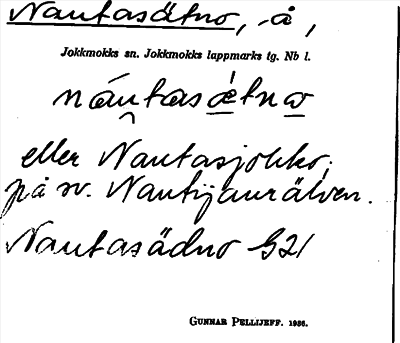 Nautasätno, -å,
Jokkmokks sn. Jokkmokks lappmarks tg. Nb l.
náu̯tasǽ̱tnɷ̱
eller Nautasjokko;
på sv. Nautijaurälven.
Nautasädno G21
GUNNAR PELLIJEFF. 1986.